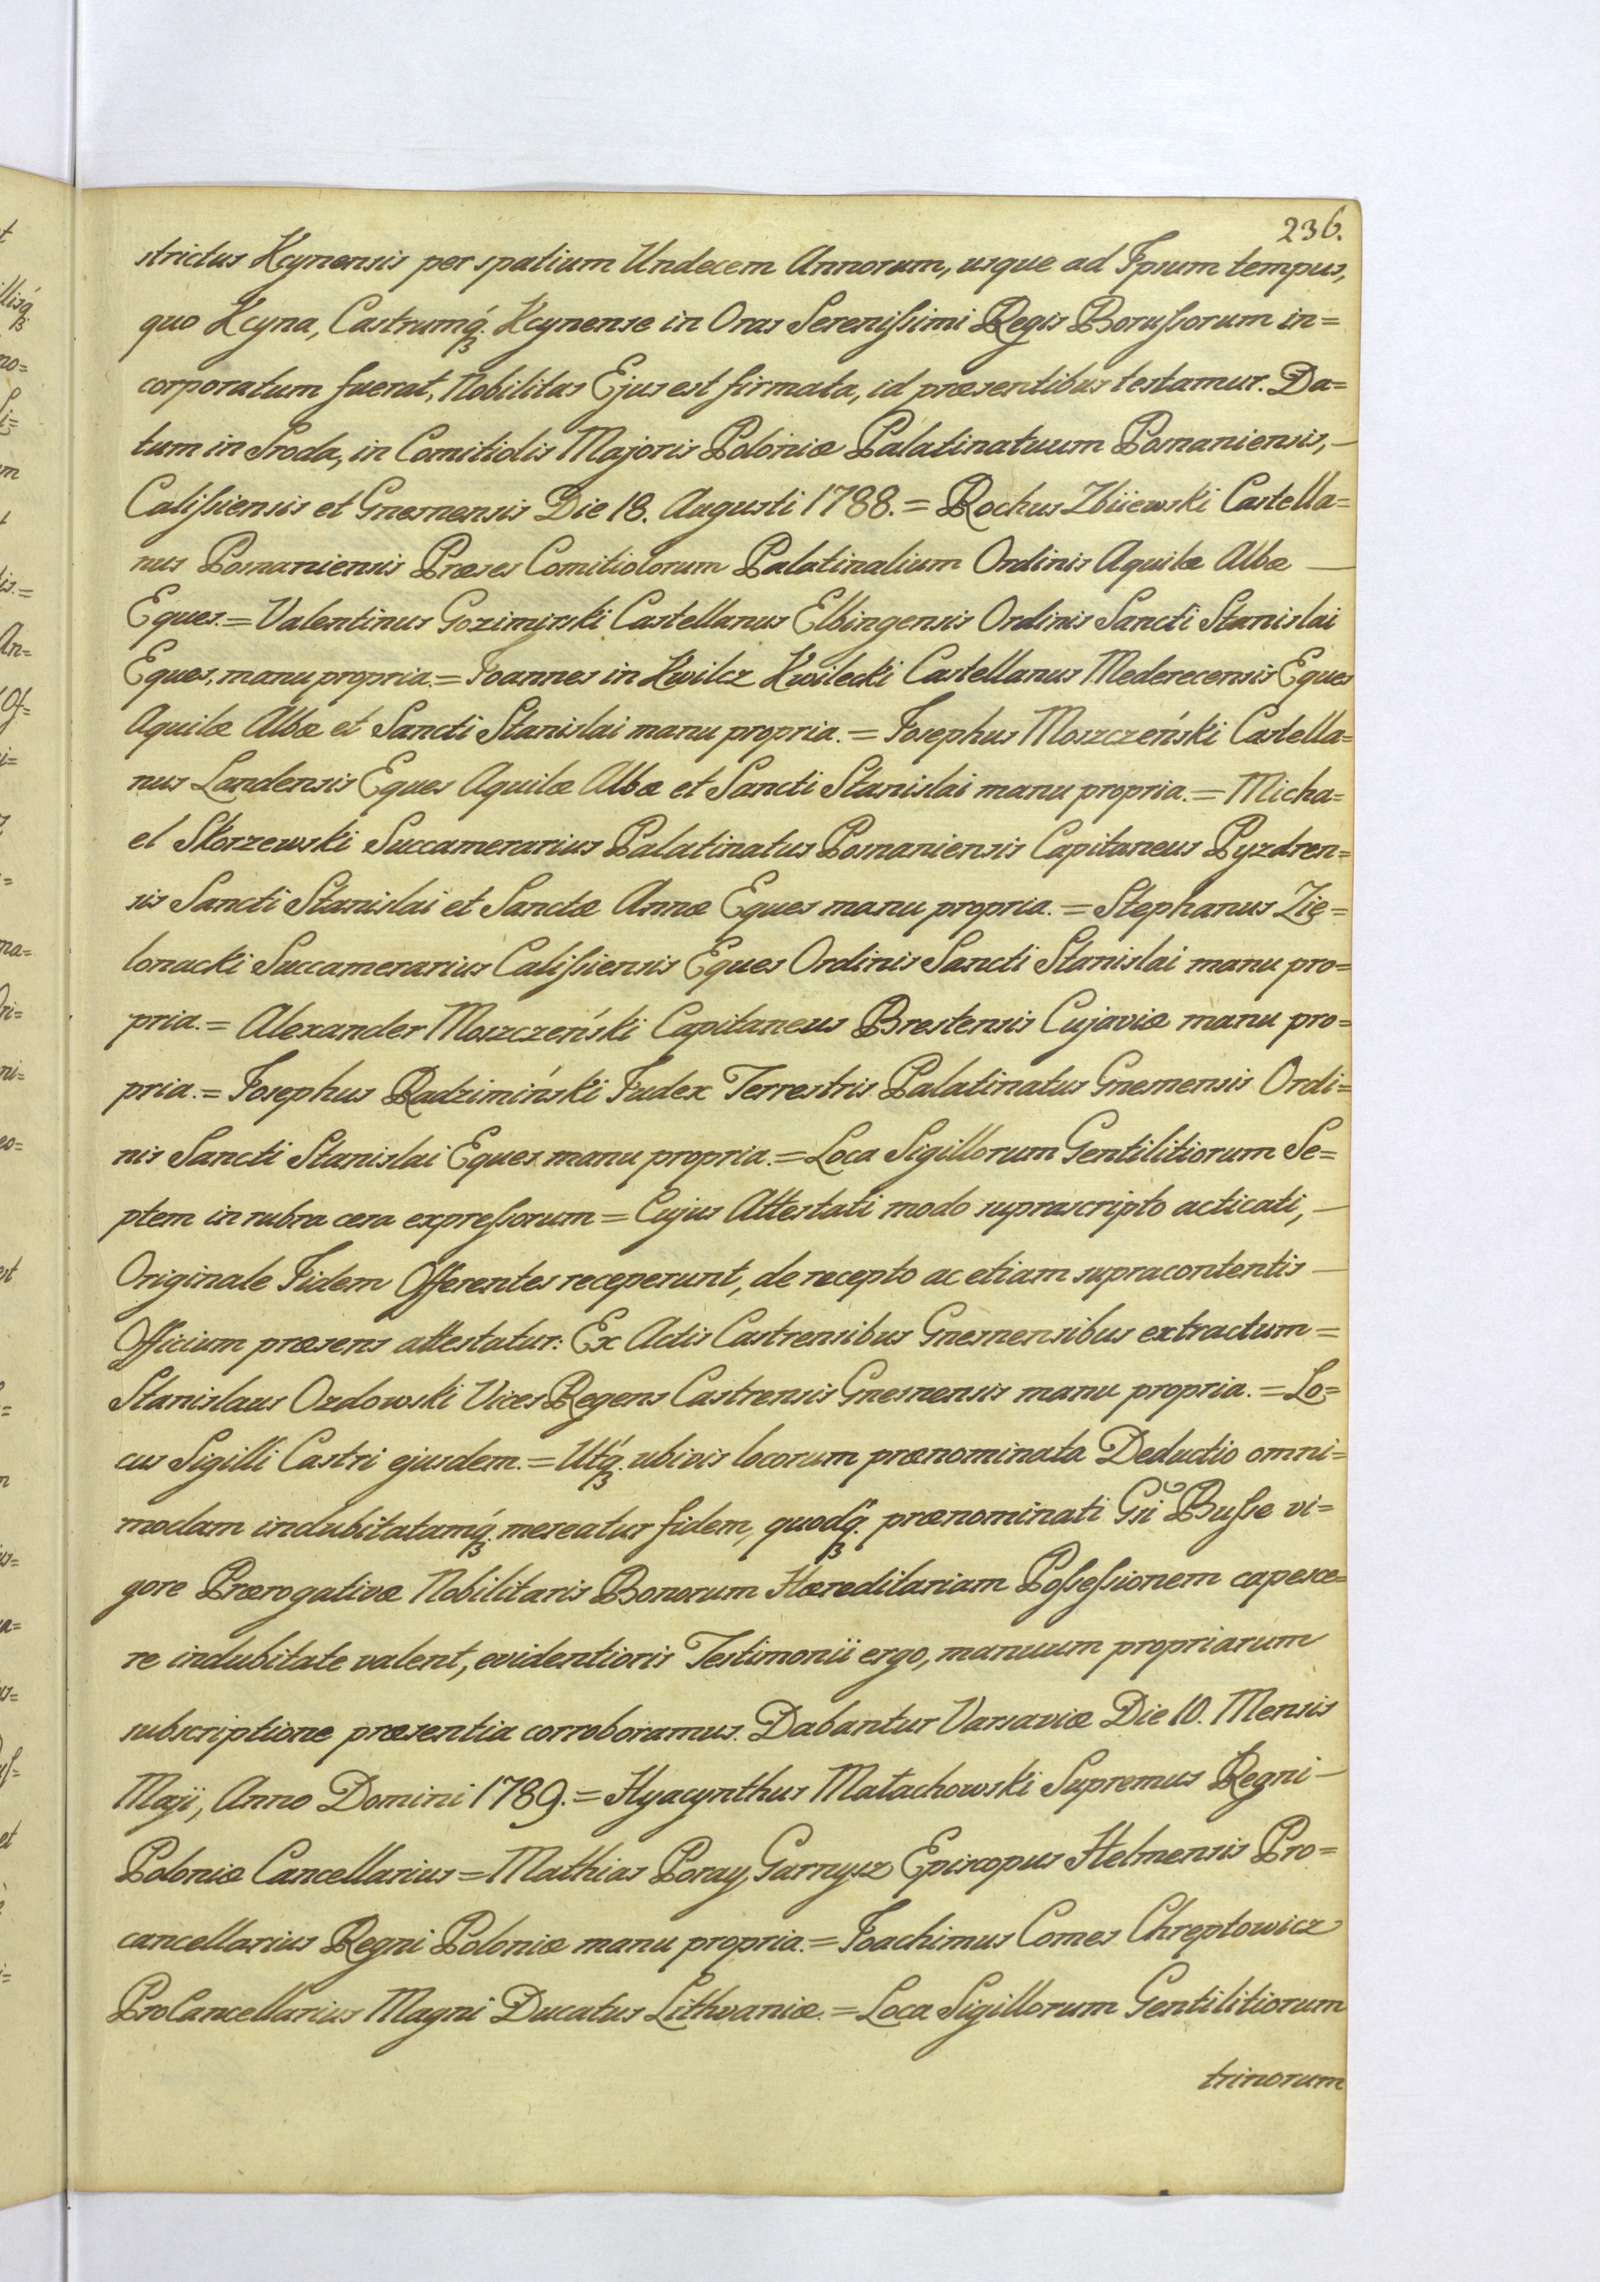 236.
strictus Kcynensis per spatium Undecem Annorum, usque ad Ipsum tempus,
quo Kcyna, Castrumq́ꝫ. Kcynense in Oras Sereniſsimi Regis Boruſsorum in=
corporatum fuerat, Nobilitas Ejus est firmata, id præsentibus testamur. Da=
tum in Sroda, in Comitiolis Majoris Poloniæ Palatinatuum Posnaniensis, —
Caliſsiensis et Gnesnensis Die 18. Augusti 1788. = Rochus Zbiiewski Castella=
nus Posnaniensis Præses Comitiolorum Palatinalium Ordinis Aquilæ Albæ —
Eques. = Valentinus Gozimirski Castellanus Elbingensis Ordinis Sancti Stanislai
Eques, manu propria. = Joannes in Kwilcz Kwilecki Castellanus Mederecensis Eques
Aquilæ Albæ et Sancti Stanislai manu propria. = Josephus Moszczeński Castella=
nus Landensis Eques Aquilæ Albæ et Sancti Stanislai manu propria. = Micha=
el Skorzewski Succamerarius Palatinatus Posnaniensis Capitaneus Pyzdren=
sis Sancti Stanislai et Sanctæ Annæ Eques manu propria. = Stephanus Zię=
lonacki Succamerarius Caliſsiensis Eques Ordinis Sancti Stanislai manu pro=
pria. = Alexander Moszczeński Capitaneus Brestensis Cujaviæ manu pro=
pria. = Josephus Radzimiński Judex Terrestris Palatinatus Gnesnensis Ordi=
nis Sancti Stanislai Eques manu propria. = Loca Sigillorum Gentilitiorum Se=
ptem in rubra cera expreſsorum = Cujus Attestati modo suprascripto acticati, —
Originale Iidem Offerentes receperunt, de recepto ac etiam supracontentis —
Officium præsens attestatur: Ex Actis Castrensibus Gnesnensibus extractum =
Stanislaus Ozdowski Vices Regens Castrensis Gnesnensis manu propria. = Lo=
cus Sigilli Castri ejusdem. = Utq́ꝫ. ubivis locorum prænominata Deductio omni=
modam indubitatamq́ꝫ. mereatur fidem, quodq́ꝫ. prænominati Gsi Buſse vi=
gore Prærogativæ Nobilitaris Bonorum Hæreditariam Poſseſsionem capesce=
re indubitate valent, evidentioris Testimonii ergo, manuum propriarum
subscriptione præsentia corroboramus. Dabantur Varsaviæ Die 10. Mensis
Maji, Anno Domini 1789. = Hyacynthus Małachowski Supremus Regni —
Poloniæ Cancellarius = Mathias Poray Garnysz Episcopus Helmensis Pro=
cancellarius Regni Poloniæ manu propria. = Joachimus Comes Chreptowicz
ProCancellarius Magni Ducatus Lithvaniæ. = Loca Sigillorum Gentilitiorum
trinorum